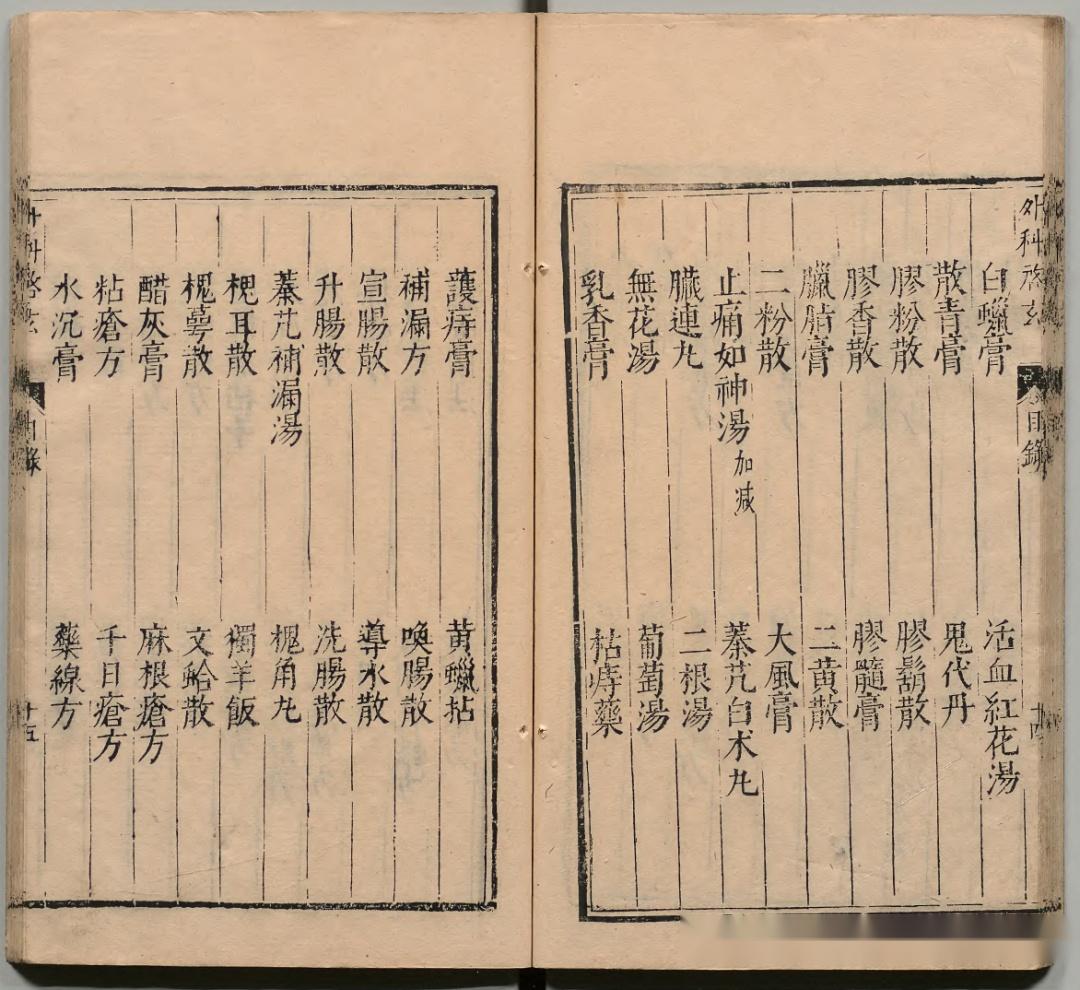 外科啓玄 目錄 十四
白蠟膏 活血紅花湯
散青膏 鬼代丹
膠粉散 膠鬍散
膠香散 膠髓膏
臘脂膏 二黄散
二粉散 大風膏
止痛如神湯加减 蓁艽白术丸
臟連丸 二根湯
無花湯 葡萄湯
乳香膏 枯痔藥
護痔膏 黄蠟拈
補漏方 喚腸散
宣腸散 導水散
升腸散 洗腸散
蓁艽補漏湯 槐角丸
槐耳散 獨羊飯
槐蕚散 文蛤散
醋灰膏 麻根瘡方
粘瘡方 千日瘡方
水沉膏 藥線方
外科啓玄 目錄 十五